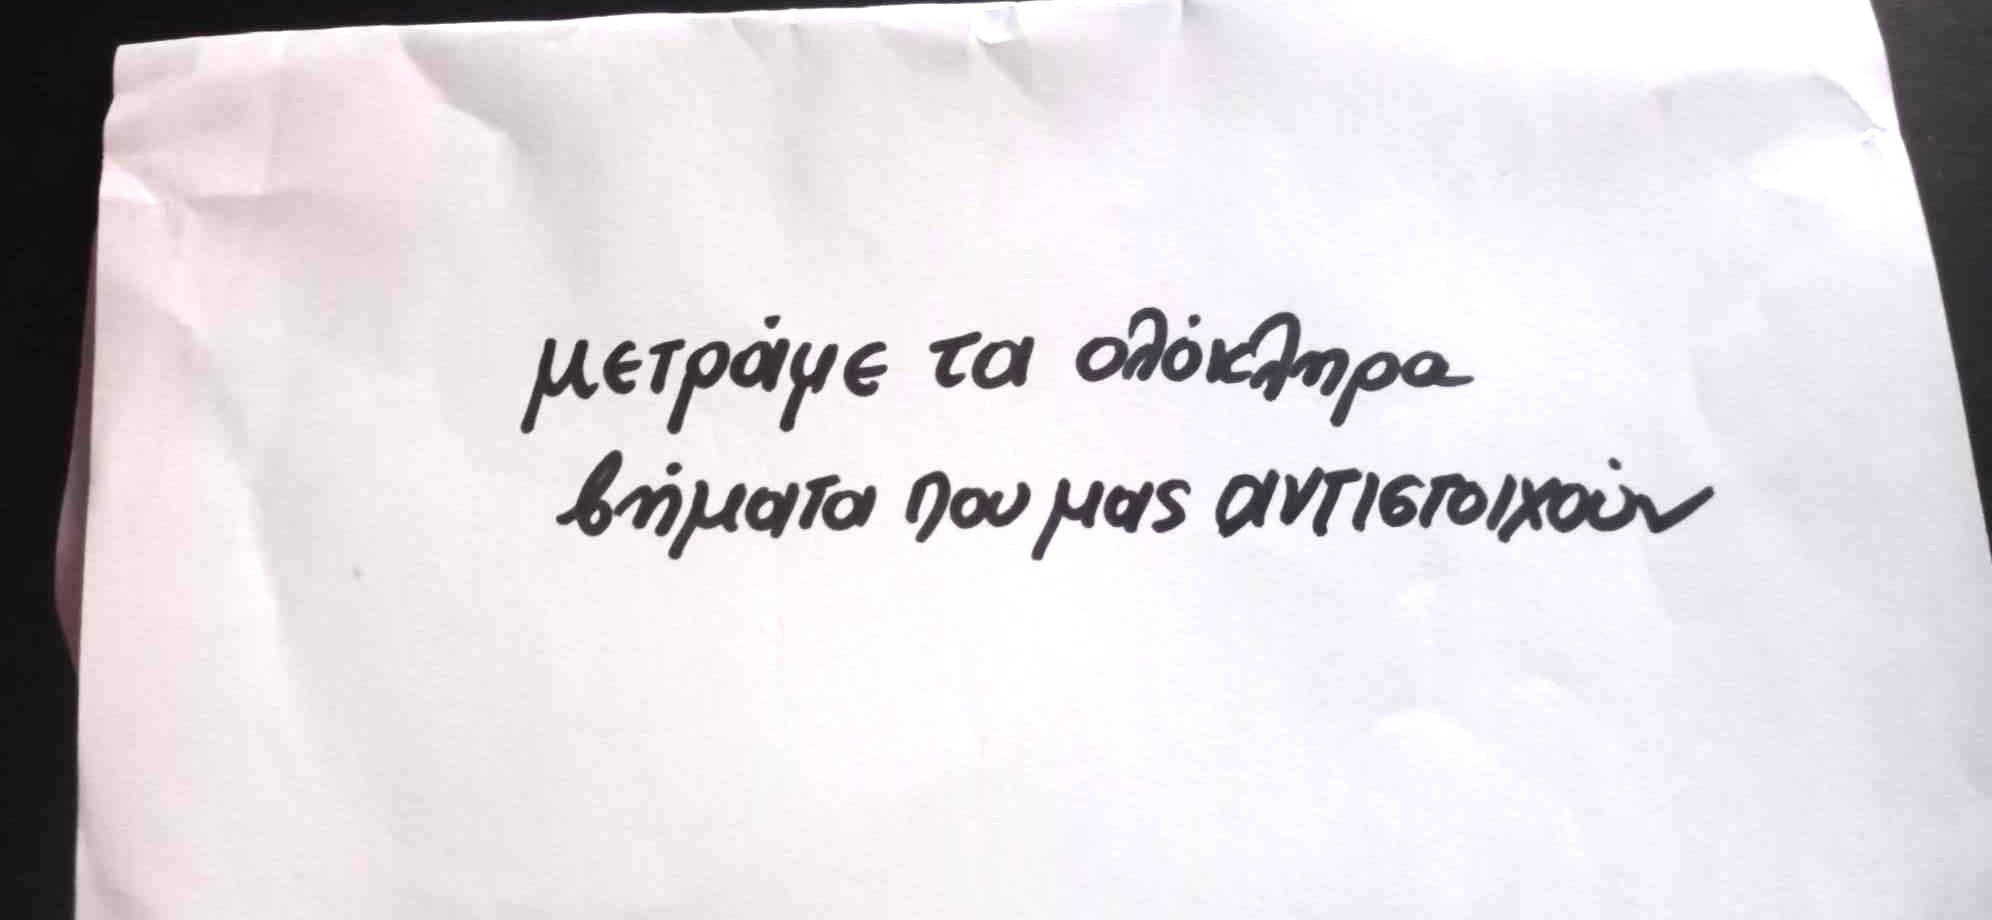 μετράμε τα ολόκληρα
βήματα που μας αντιστοιχούν